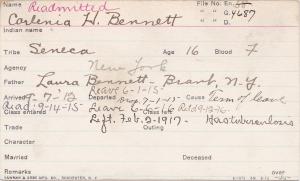 Name Readmitted File No. En.
Carlenia H. Bennett " " G. 4687
Indian name " " D.
Tribe Seneca Age 16 Blood F
Agency New York
Father Laura Bennett - Brant, N.Y.
Leave 6-1-15
Arrived 9-7-12 Departed 7-1-15 Cause Term of Leave
Read. 9-14-15 Leave 6-6-16 Read 9-12-16
Class entered
Left. Feb. 2-1917. Has tuberculosis
Trade Outing
Character
Married Deceased
Remarks over